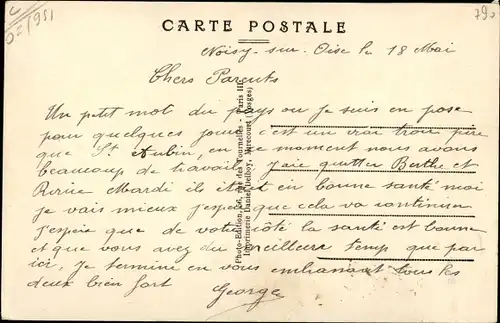 C
02/951
79
CARTE POSTALE
Noisy-sur-Oise le 18 Mai
Chers Parents
Un petit mot du pays ou je suis en pose
pour quelques jours c'est un vrai trou pire
que St Aubin, en ce moment nous avons
beaucoup de travail j'aie quitter Berthe et
Mardi ils étaient en bonne santé moi
je vais mieux j'espère que cela va continuer
j'espère que de votre côté la santé est bonne
et que vous avez du meilleure temp que par
ici, Je termine en vous embrassant tous les
deux bien fort
George
Photo-Edition, rue des Tournelles - Paris III
Imprimerie Daniel Delboy, Mirecourt (Vosges)